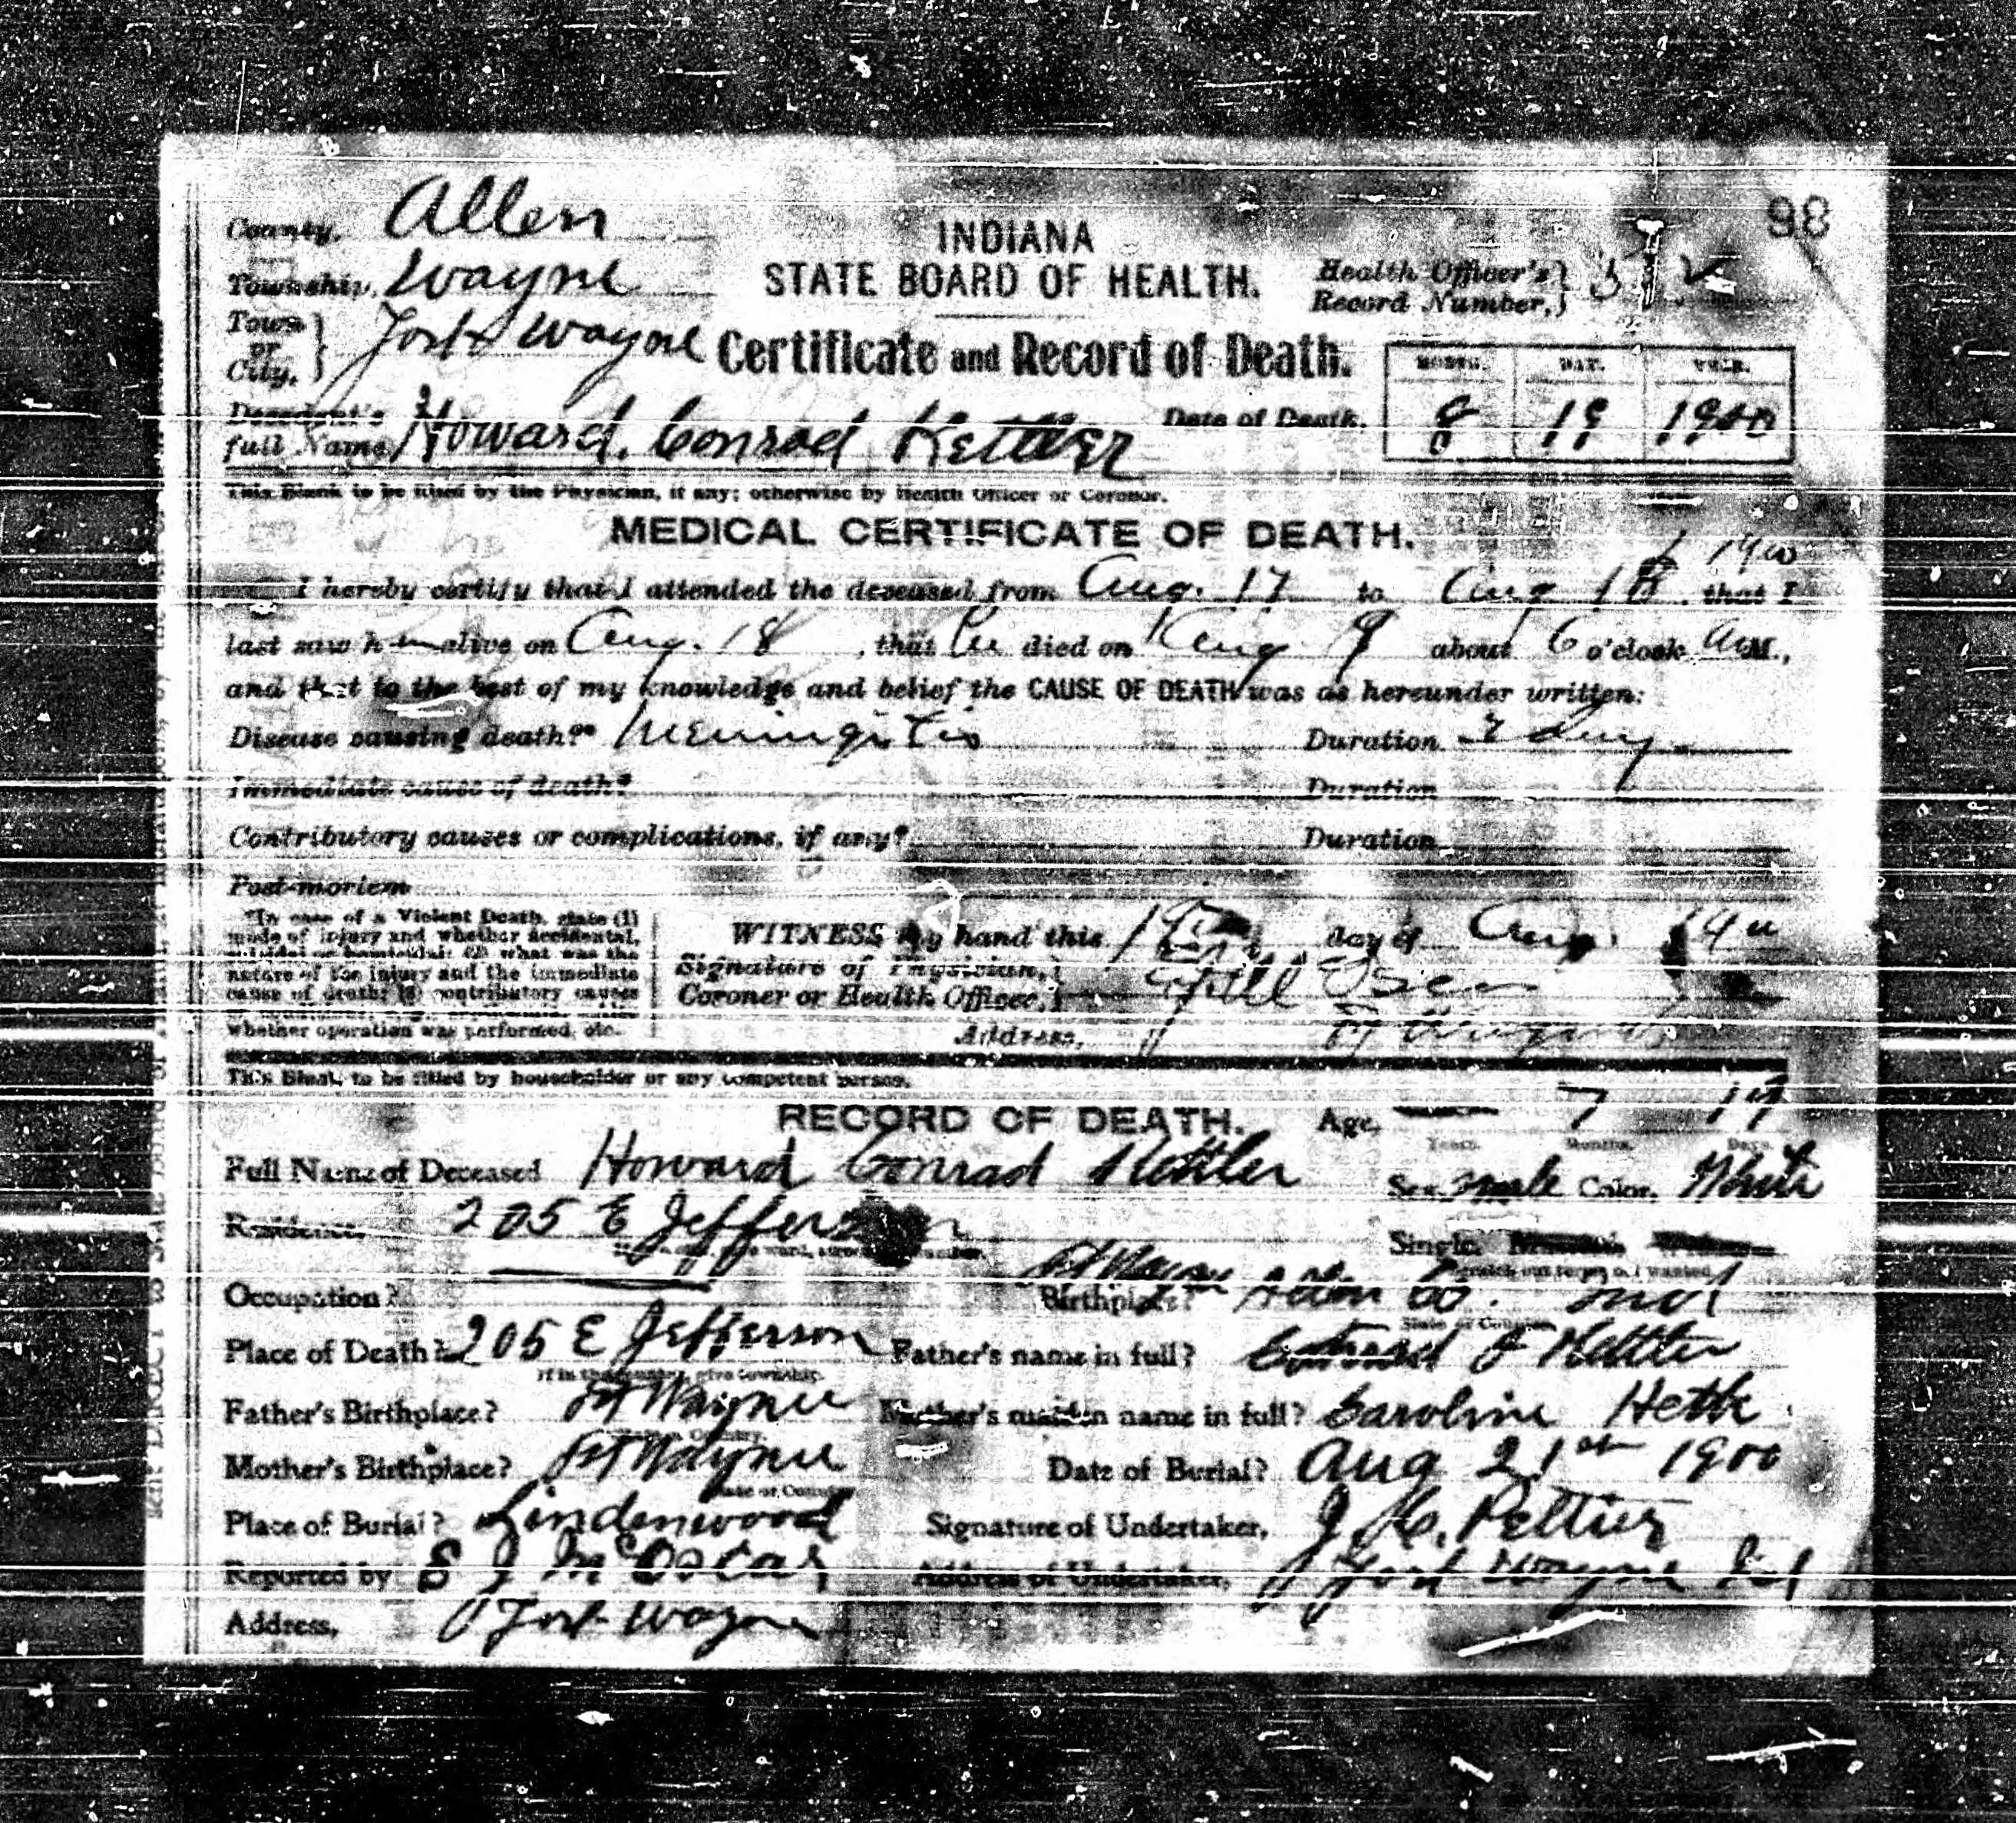 98
County, Allen
INDIANA
Township, Wayne
STATE BOARD OF HEALTH.
Health Officer's } Record Number,
Town or City, } Fort Wayne
Certificate and Record of Death.
MONTH. DAY. YEAR.
Decedent's full Name, Howard. Conrad Kettler
Date of Death, 8 19 1900
This Blank to be filled by the Physician, if any; otherwise by Health Officer or Coroner.
MEDICAL CERTIFICATE OF DEATH.
1900
I hereby certify that I attended the deceased from Aug. 17 to Aug 18, that I
last saw h im alive on Aug. 18, that he died on Aug 9 about 6 o'clock A.M.,
and that to the best of my knowledge and belief the CAUSE OF DEATH was as hereunder written:
Disease causing death?* Meningitis Duration
Immediate cause of death? Duration
Contributory causes or complications, if any? Duration
Post-mortem
*In case of a Violent Death, state (1)
mode of injury and whether accidental,
suicidal or homicidal; (2) what was the
nature of the injury and the immediate
cause of death; (3) contributory causes
whether operation was performed, etc.
WITNESS my hand this 19 day of Aug. 1900
Signature of Physician, Coroner or Health Officer, }
Address,
This Blank to be filled by householder or any competent person.
RECORD OF DEATH.
Age, — 7 17
Years. Months. Days.
Full Name of Deceased Howard Conrad Kettler
Sex, male Color, White
Residence, 205 E Jefferson
Single,
Occupation?
Birthplace? Ft Wayne Allen Co. Ind
State or Country
Place of Death? 205 E Jefferson
Father's name in full? Conrad J Kettler
If in the country, give township.
Father's Birthplace? Ft Wayne
Mother's maiden name in full? Caroline
Mother's Birthplace? Ft Wayne
State or Country
Date of Burial? Aug 21st 1900
Place of Burial? Lindenwood
Signature of Undertaker, J. C. Peltier
Reported by E J McOscar
Address of Undertaker, Fort Wayne Ind
Address, Fort Wayne